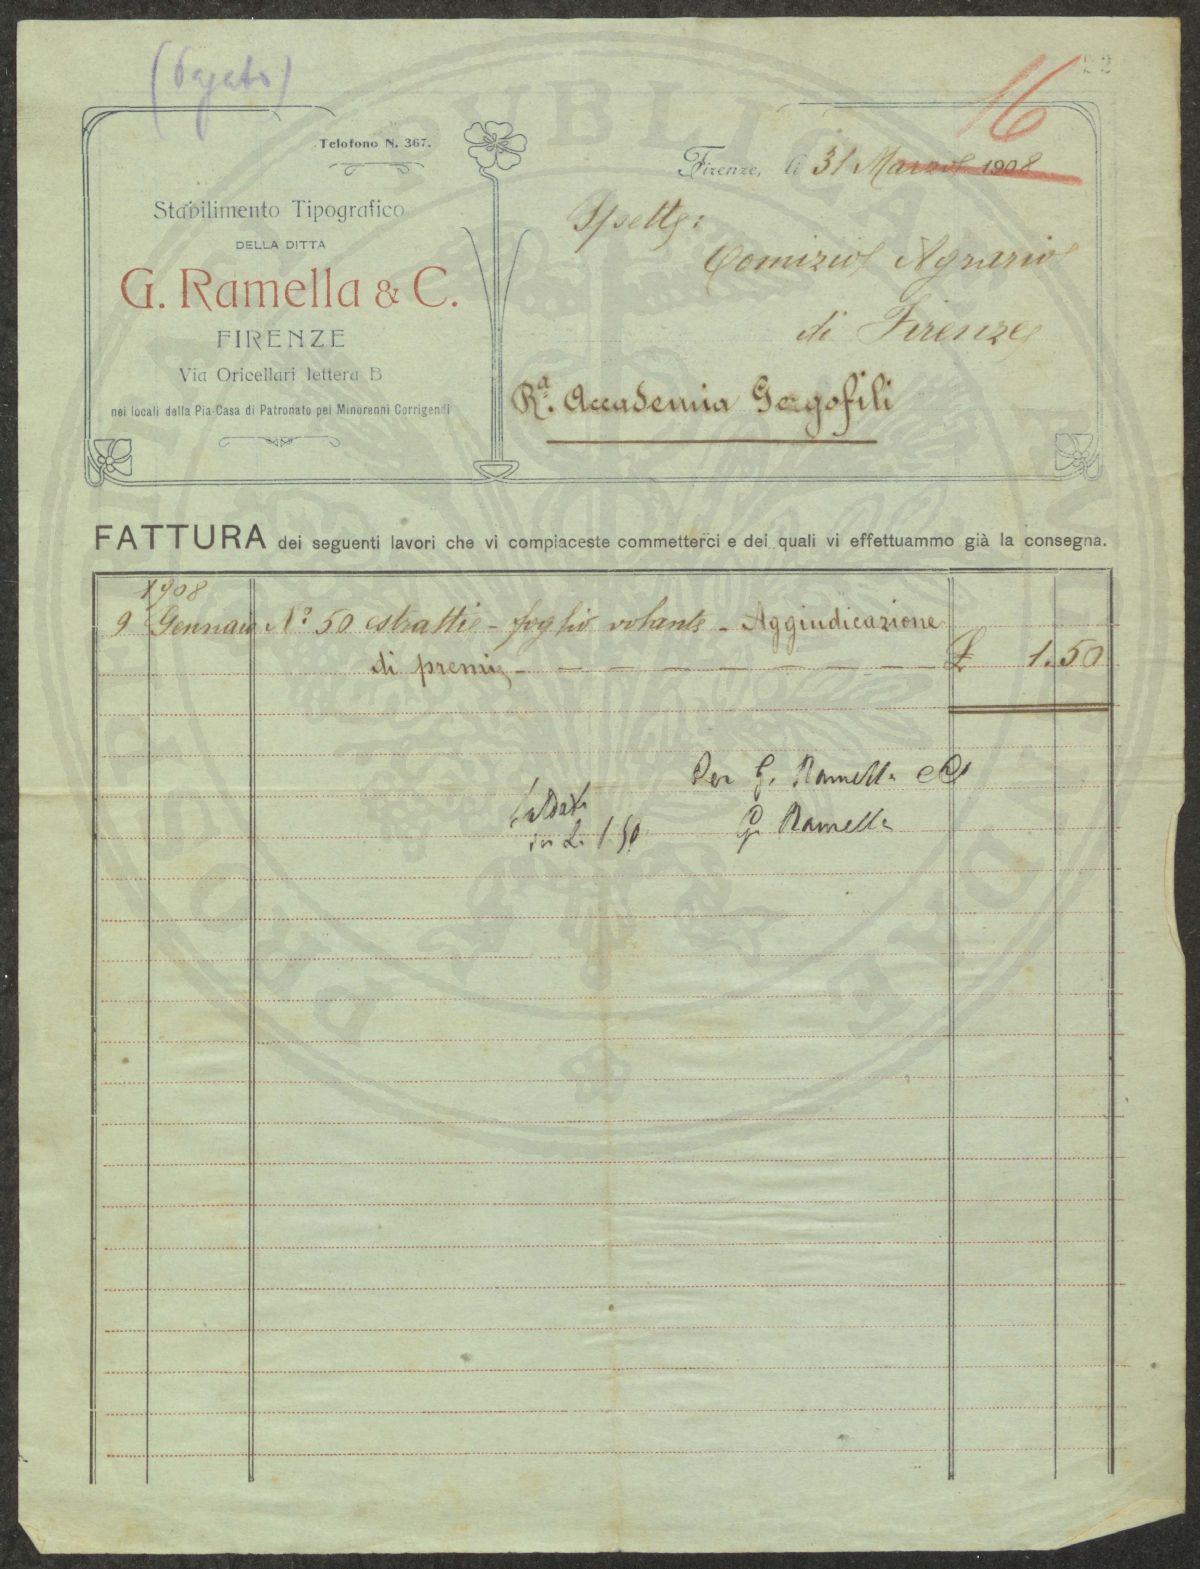 (Pagato)
16
22
Telefono N. 367.
Stabilimento Tipografico
DELLA DITTA
G. Ramella & C.
FIRENZE
Via Oricellari lettera B
nei locali della Pia Casa di Patronato pei Minorenni Corrigendi
Firenze, li 31 Marzo 1908
Spett:
Comizio Agrario
di Firenze
Rª. Accademia Gergofili
FATTURA dei seguenti lavori che vi compiaceste commetterci e dei quali vi effettuammo già la consegna.
1908
9 Gennaio Nº 50 estratti - foglio volante - Aggiudicazione
di premi - £ 1.50
Per G. Ramella e C
Saldata
in L. 1.50
G Ramella
PUBLICAE